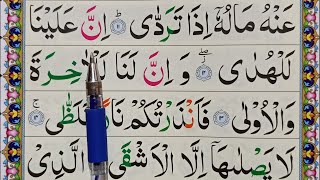 عَنْهُ مَالُهٗۤ اِذَا تَرَدّٰى ۝۱۱ اِنَّ عَلَيْنَا
لَلْهُدٰى ۝۱۲ وَ اِنَّ لَنَا لَلْاٰخِرَةَ
وَالْاُوْلٰى ۝۱۳ فَاَنْذَرْتُكُمْ نَارًا تَلَظّٰى ۝۱۴
لَا يَصْلٰىهَاۤ اِلَّا الْاَشْقَى الَّذِيْ